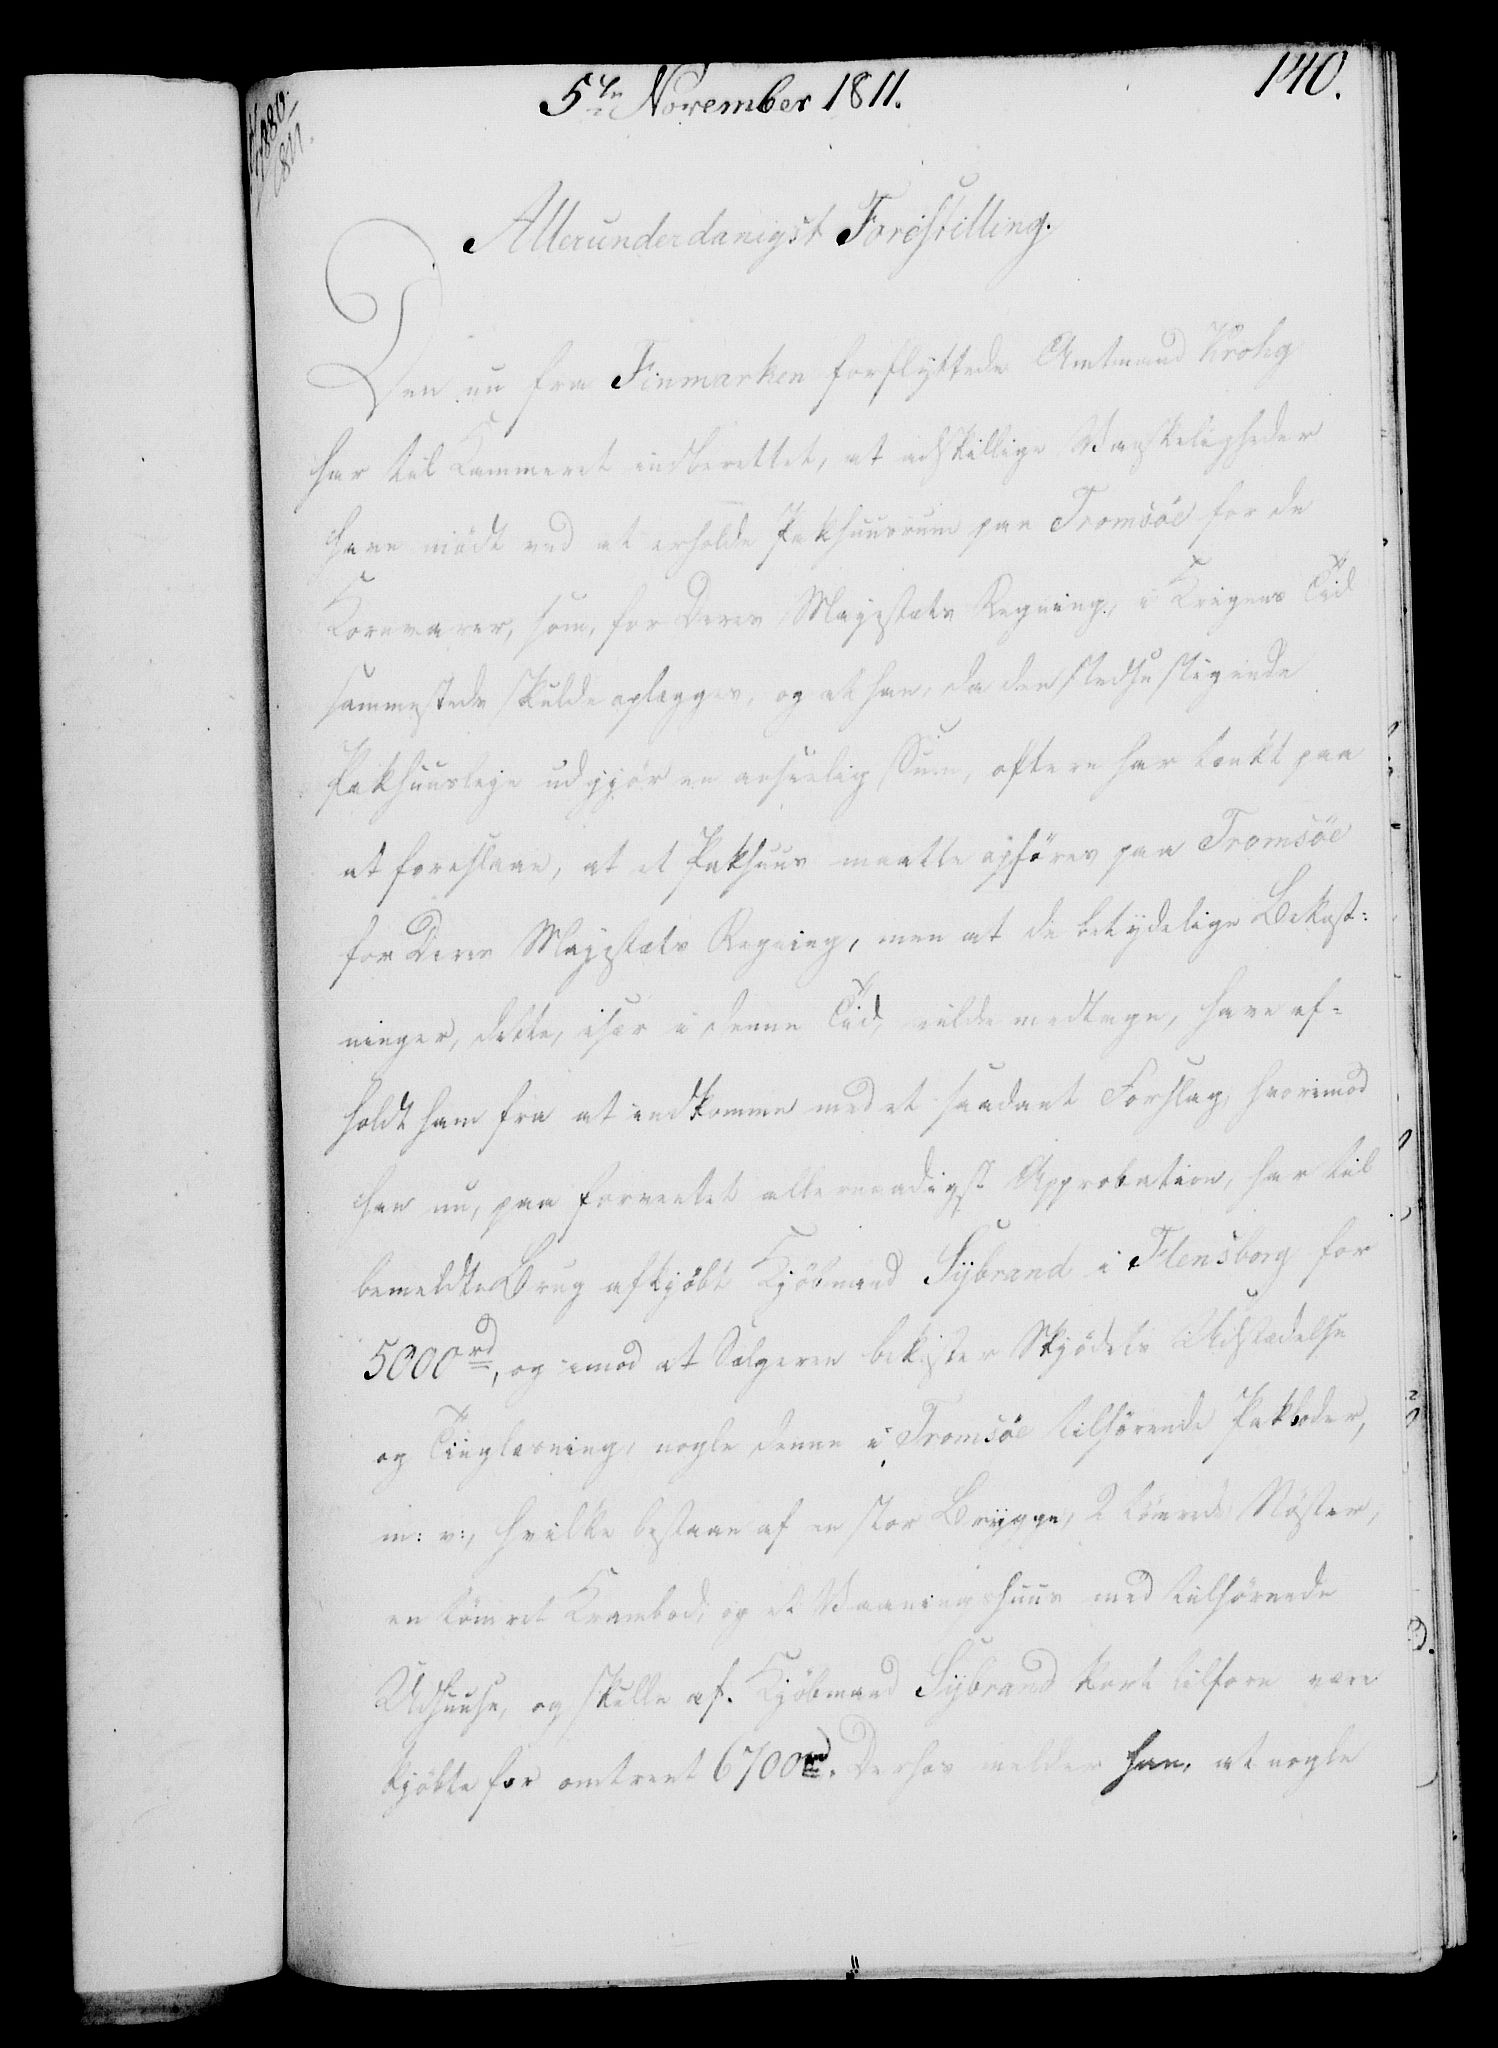 5te November 1811.
140.
Allerunderdanigst Forestilling.
Den nu fra Finmarken forflyttede Amtmand Krohg
har til Kammeret indberettet, at adskillige Vanskeligheder
have mödt ved at erholde Pakhuusrum paa Tromsöe for de
Kornvarer, som, for Deres Majestæts Regning, i Krigens Tid
sammesteds skulde oplægges, og at han, da den stedse stigende
Pakhuusleje udgjör en anseelig Sum, oftere har tænkt paa
at foreslaae, at et Pakhuus maatte opföres paa Tromsöe
for Deres Majestæts Regning, men at de betydelige Bekost:
ninger, dette, især i denne Tid, vilde medtage, have af=
holdt ham fra at indkomme med et saadant Forslag, hvorimod
han nu, paa forventet allernaadigst Approbation, har til
bemeldte Brug afkjöbt Kjöbmand Sÿbrand i Flensborg for
5000 rd, og imod at Sælgeren bekoster Skjödets Udstædelse
og Tinglæsning, nogle denne i Tromsöe tilhörende Pakboder,
m: v:, hvilke bestaae af en stor Brygge, 2 tömrede Nöster,
en tömret Krambod, og et Vaaningshuus med tilhörende
Udhuuse, og skulle af Kjöbmand Sÿbrand kort tilforn være
kjöbte for omtrent 6700 rd. Derhos melder han, at nogle